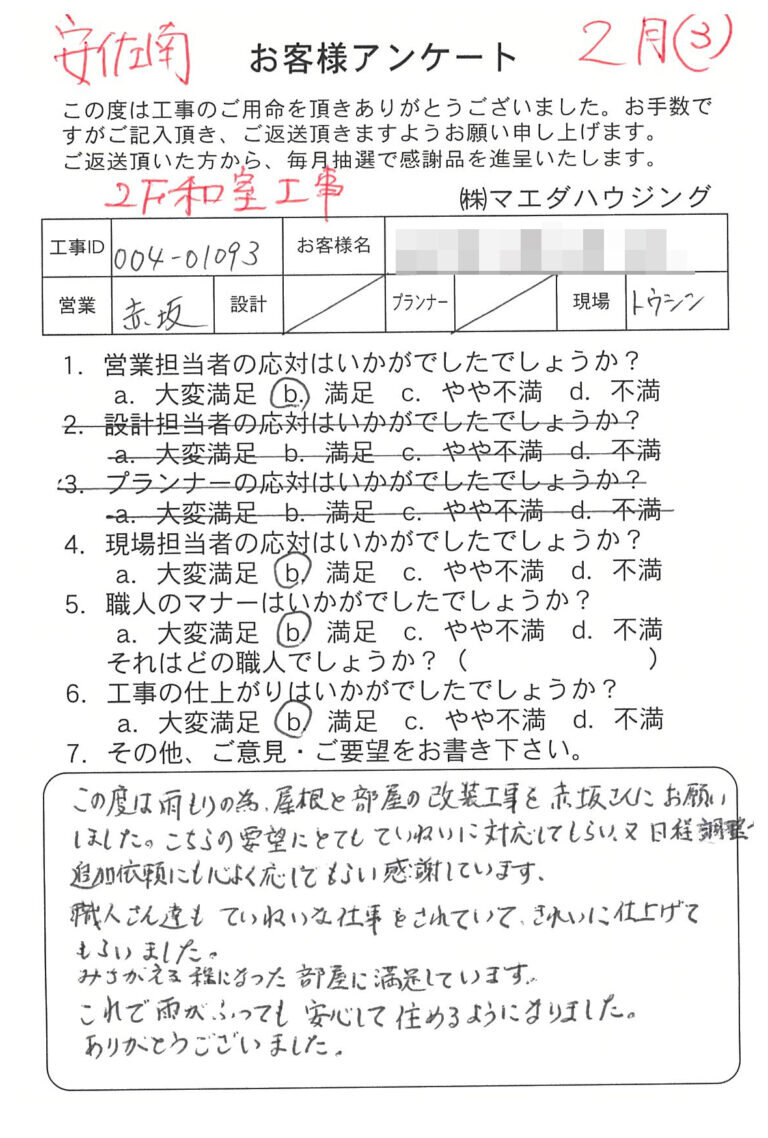 安佐南 お客様アンケート 2月(3)
この度は工事のご用命を頂きありがとうございました。お手数で
すがご記入頂き、ご返送頂きますようお願い申し上げます。
ご返送頂いた方から、毎月抽選で感謝品を進呈いたします。
2F和室工事 ㈱マエダハウジング
工事ID 004-01093 お客様名
営業 赤坂 設計 プランナー 現場 トウシン
1. 営業担当者の応対はいかがでしたでしょうか？
a. 大変満足 b. 満足 c. やや不満 d. 不満
2. 設計担当者の応対はいかがでしたでしょうか？
a. 大変満足 b. 満足 c. やや不満 d. 不満
3. プランナーの応対はいかがでしたでしょうか？
a. 大変満足 b. 満足 c. やや不満 d. 不満
4. 現場担当者の応対はいかがでしたでしょうか？
a. 大変満足 b. 満足 c. やや不満 d. 不満
5. 職人のマナーはいかがでしたでしょうか？
a. 大変満足 b. 満足 c. やや不満 d. 不満
それはどの職人でしょうか？（ ）
6. 工事の仕上がりはいかがでしたでしょうか？
a. 大変満足 b. 満足 c. やや不満 d. 不満
7. その他、ご意見・ご要望をお書き下さい。
この度は雨もりの為、屋根と部屋の改装工事を赤坂さんにお願い
しました。こちらの要望にとてもていねいに対応してもらい、又日程調整や
追加依頼にも心よく応じてもらい感謝しています、
職人さん達もていねいな仕事をされていて、きれいに仕上げて
もらいました。
みちがえる程になった部屋に満足しています。
これで雨がふっても安心して住めるようになりました。
ありがとうございました。